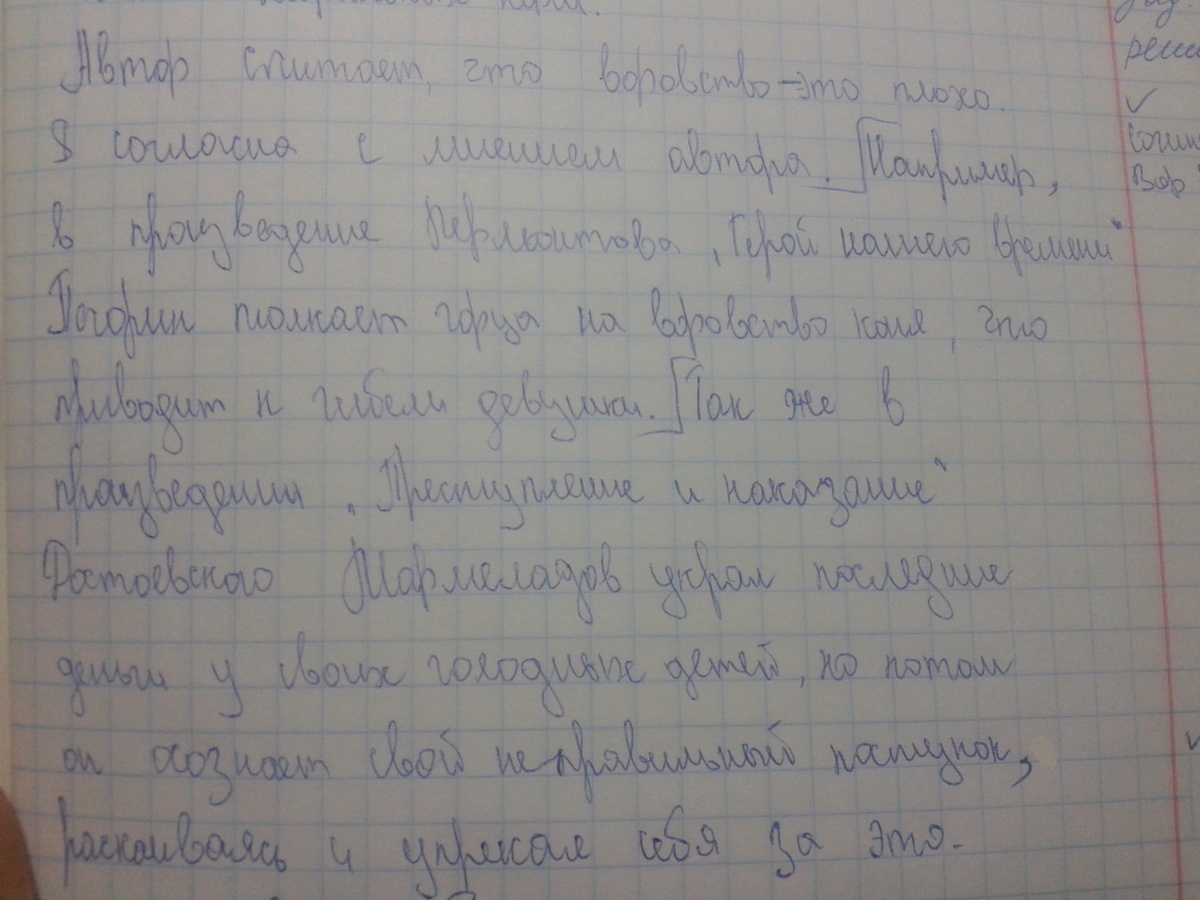 Автор считает, что воровство – это плохо.
Я согласна с мнением автора. Например,
в произведение Лермонтова „Герой нашего времени“
Печорин толкает горца на воровство коня, что
приводит к гибели девушки. Так же в
произведении „Преступление и наказание“
Достоевского Мармеладов украл последние
деньги у своих голодных детей, но потом
он осознает свой неправильный поступок,
раскаиваясь и упрекая себя за это.